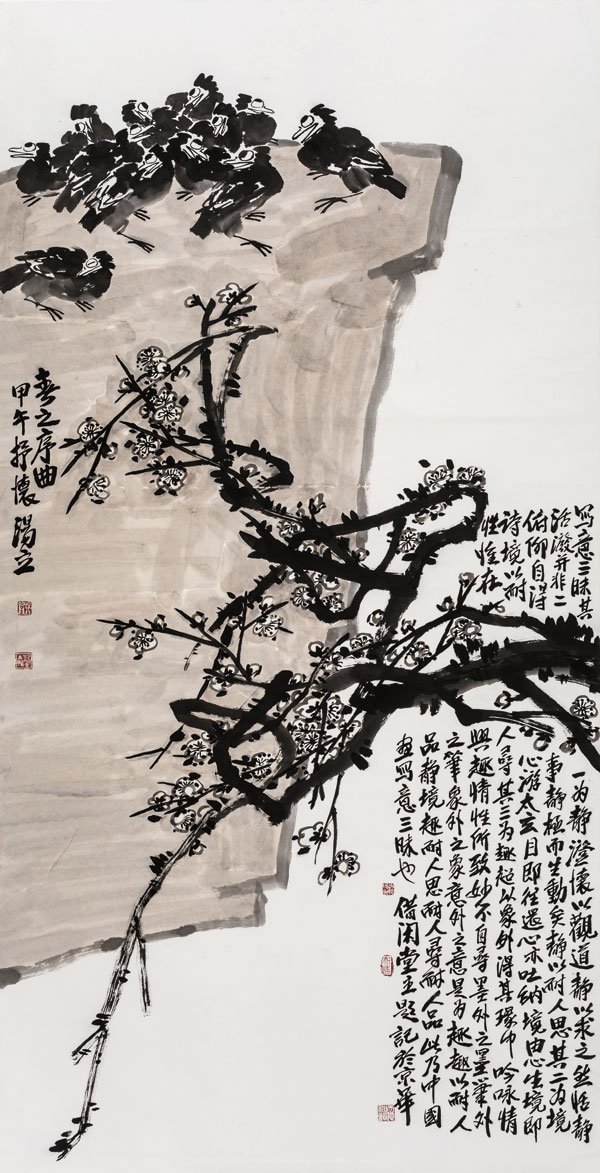 春之序曲
甲午抒懷 湯立
寫意三昧其
活潑并非二
俯仰自得
詩境以耐
性惟在
一为静澄懷以觀道静以求之然恬静
事静極而生動矣静以耐人思其二为境
心游太玄目即往還心亦吐纳境由心生境即
人尋其三为趣超以象外得其環中吟咏情
與趣情性所致妙不自尋墨外之墨筆外
之筆象外之象意外之意是为趣趣以耐人
品静境趣耐人思耐人尋耐人品此乃中國
画寫意三昧也 借闲堂主题記於京華